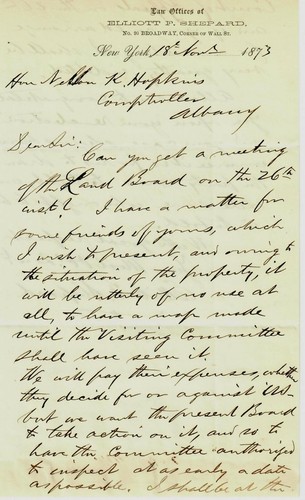 Law Offices of
ELLIOTT F. SHEPARD,
No. 91 BROADWAY, CORNER OF WALL ST.
New York, 18th Novr 1873
Hon Nelson K. Hopkins
Comptroller
Albany
Dear Sir:
Can you get a meeting
of the Land Board on the 26th
inst? I have a matter for
some friends of yours, which
I wish to present, and owing to
the situation of the property, it
will be utterly of no use at
all, to have a map made
until the Visiting Committee
shall have seen it.
We will pay their expenses, whether
they decide for or against us—
but we want the present Board
to take action on it, and so to
have the committee authorized
to inspect it at as early a date
as possible. I shall be at the